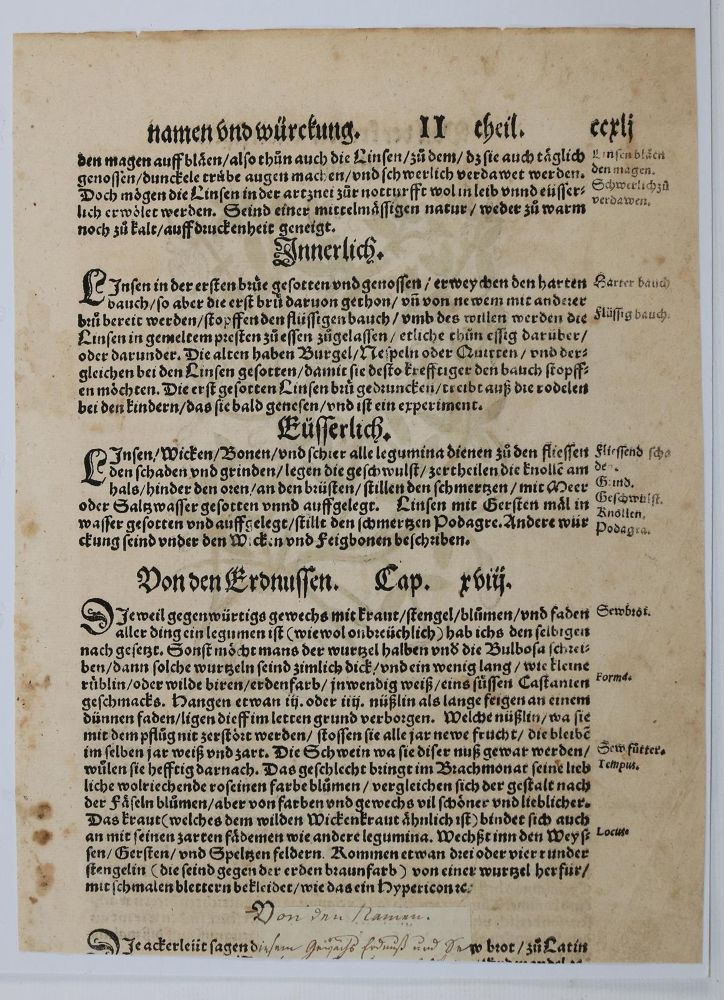 namen vnd würckung. II theil. ccxlj
den magen auff bläen/also thůn auch die Linsen/zů dem/dz sie auch täglich
genossen/dunckele trübe augen machen/vnd schwerlich verdawet werden.
Doch mögen die Linsen in der artznei zůr notturfft wol in leib vnnd eüsser-
lich erwölet werden. Seind einer mittelmässigen natur/weder zů warm
noch zů kalt/auff druckenheit geneigt.
Linsen bläen
den magen.
Schwerlich zů
verdawen.
Innerlich.
LInsen in der ersten brüe gesotten vnd genossen/erweychen den harten
bauch/so aber die erst brü daruon gethon/vñ von newem mit anderer
brü bereit werden/stopffen den flüssigen bauch/vmb des willen werden die
Linsen in gemeltem presten zů essen zůgelassen/etliche thůn essig darüber/
oder darunder. Die alten haben Burgel/Nespeln oder Quitten/vnd der-
gleichen bei den Linsen gesotten/damit sie desto krefftiger den bauch stopff-
en möchten. Die erst gesotten Linsen brü gedruncken/treibt auß die rodelen
bei den kindern/das sie bald genesen/vnd ist ein experiment.
Harter bauch
Flüssig bauch.
Eüsserlich.
LInsen/Wicken/Bonen/vnd schier alle legumina dienen zů den fliessen
den schaden vnd grinden/legen die geschwulst/zertheilen die knollē am
hals/hinder den oren/an den brüsten/stillen den schmertzen/mit Meer
oder Saltzwasser gesotten vnnd auffgelegt. Linsen mit Gersten mäl in
wasser gesotten vnd auffgelegt/stillt den schmertzen Podagre. Andere wür
ckung seind vnder den Wicken vnd Feigbonen beschriben.
Fliessend scha
Grind.
Geschwulst.
Knollen.
Podagra.
Von den Erdnussen. Cap. xviij.
DIeweil gegenwürtigs gewechs mit kraut/stengel/blůmen/vnd faden
aller ding ein legumen ist (wiewol onbreüchlich) hab ichs den selbigen
nach gesetzt. Sonst möcht mans der wurtzel halben vnd die Bulbosa schrei-
ben/dann solche wurtzeln seind zimlich dick/vnd ein wenig lang/wie kleine
rüblin/oder wilde biren/erdenfarb/jnwendig weiß/eins süssen Castanien
geschmacks. Hangen etwan iij. oder iiij. nüßlin als lange feigen an einem
dünnen faden/ligen dieff im letten grund verborgen. Welche nüßlin/wa sie
mit dem pflůg nit zerstört werden/stossen sie alle jar newe frucht/die bleibē
im selben jar weiß vnd zart. Die Schwein wa sie diser nuß gewar werden/
wülen sie hefftig darnach. Das geschlecht bringt im Brachmonat seine lieb
liche wolriechende roseinen farbe blůmen/vergleichen sich der gestalt nach
der Fäseln blůmen/aber von farben vnd gewechs vil schöner vnd lieblicher.
Das kraut (welches dem wilden Wickenkraut ähnlich ist) bindet sich auch
an mit seinen zarten fädemen wie andere legumina. Wechßt inn den Weys-
sen/Gersten/vnd Speltzen feldern. Kommen etwan drei oder vier runder
stengelin (die seind gegen der erden braunfarb) von einer wurtzel herfür/
mit schmalen blettern bekleidet/wie das ein Hypericon ꝛc.
Sewbrot.
Forma.
Sew fütter.
Tempus.
Locus.
Von den Namen.
DIe ackerleüt sagen diesem Gewächs Erdnuß und Sew brot/zů Latin